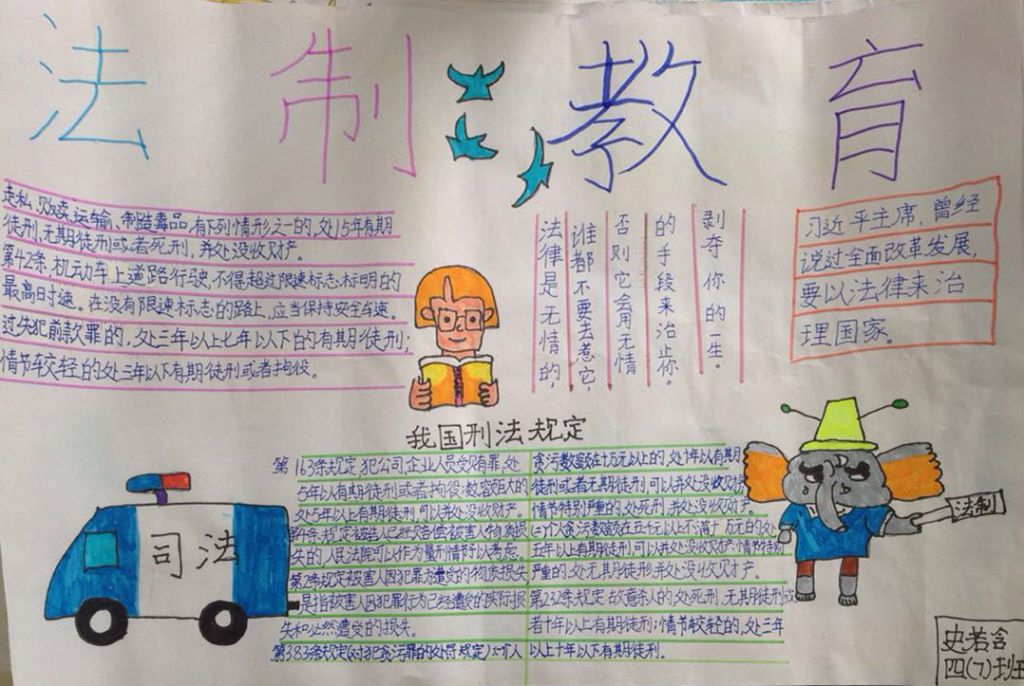 法制教育
走私、贩卖、运输、制造毒品,有下列情形之一的,处15年有期
徒刑,无期徒刑或者死刑,并处没收财产。
第42条,机动车上道路行驶,不得超过限速标志标明的
最高时速。在没有限速标志的路上,应当保持安全车速。
过失犯前款罪的,处三年以上七年以下的有期徒刑;
情节较轻的处三年以下有期徒刑或者拘役。
法律是无情的,
谁都不要去惹它,
否则它会用无情
的手段来治止你。
剥夺你的一生。
习近平主席,曾经
说过全面改革发展,
要以法律来治
理国家。
我国刑法规定
第163条规定,犯公司,企业人员受贿罪,处
5年以有期徒刑或者拘役;数额巨大的
处5年以上有期徒刑,可以并处没收财产。
第4条,规定被告人已经赔偿被害人物质损
失的,人民法院可以作为量刑情节予以考虑。
第2条规定被害人因犯罪为遭受的物质损失
是指被害人因犯罪行为已经遭受的实际损
失和必然遭受的损失。
第383条规定(对犯贪污罪的处罚规定)对个人
贪污数额在十万元以上的,处十年以有期
徒刑或者无期徒刑,可以并处没收财
情节特别严重的,处死刑,并处没收财产。
(二)个人贪污数额在五千元以上不满十万元的处
五年以上有期徒刑可以并处没收财产;情节特别
严重的,处无期徒刑并处没收财产。
第232条规定:故意杀人的处死刑,无期徒刑或
者十年以上有期徒刑;情节较轻的,处三年
以上十年以下有期徒刑。
司法
法制
史若含
四(7)班